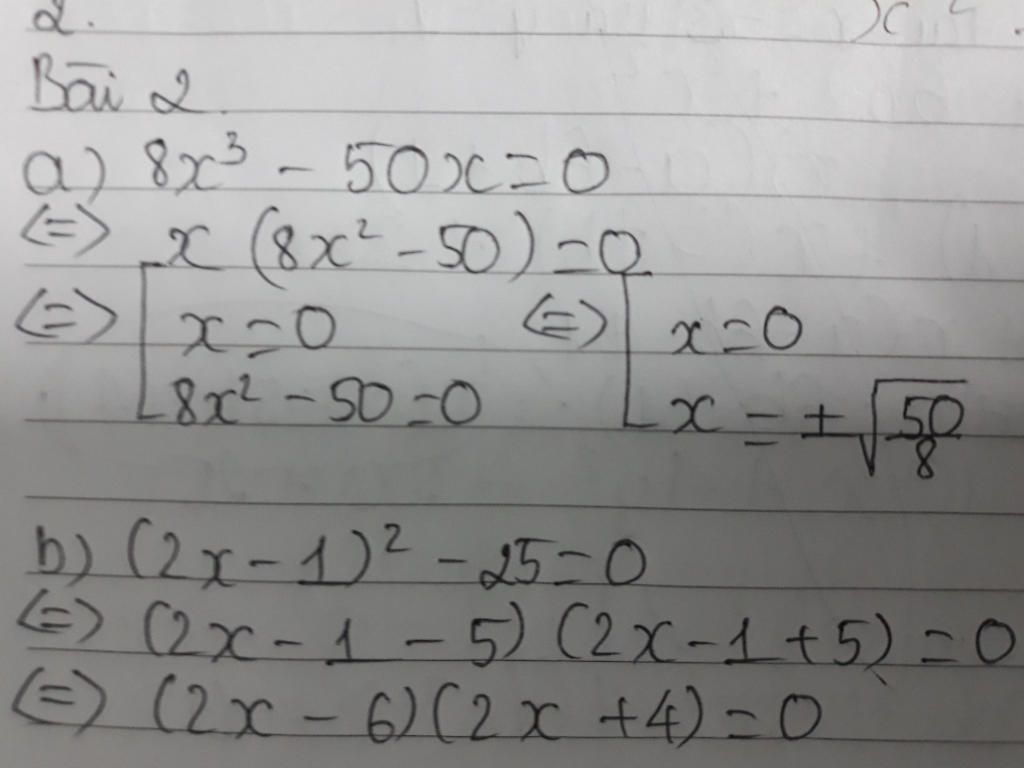 2.
Bài 2.
a) 8x³ - 50x = 0
<=> x (8x² - 50) = 0
<=> [ x = 0 <=> [ x = 0
8x² - 50 = 0 x = ±√(50/8)
b) (2x - 1)² - 25 = 0
<=> (2x - 1 - 5) (2x - 1 + 5) = 0
<=> (2x - 6)(2x + 4) = 0